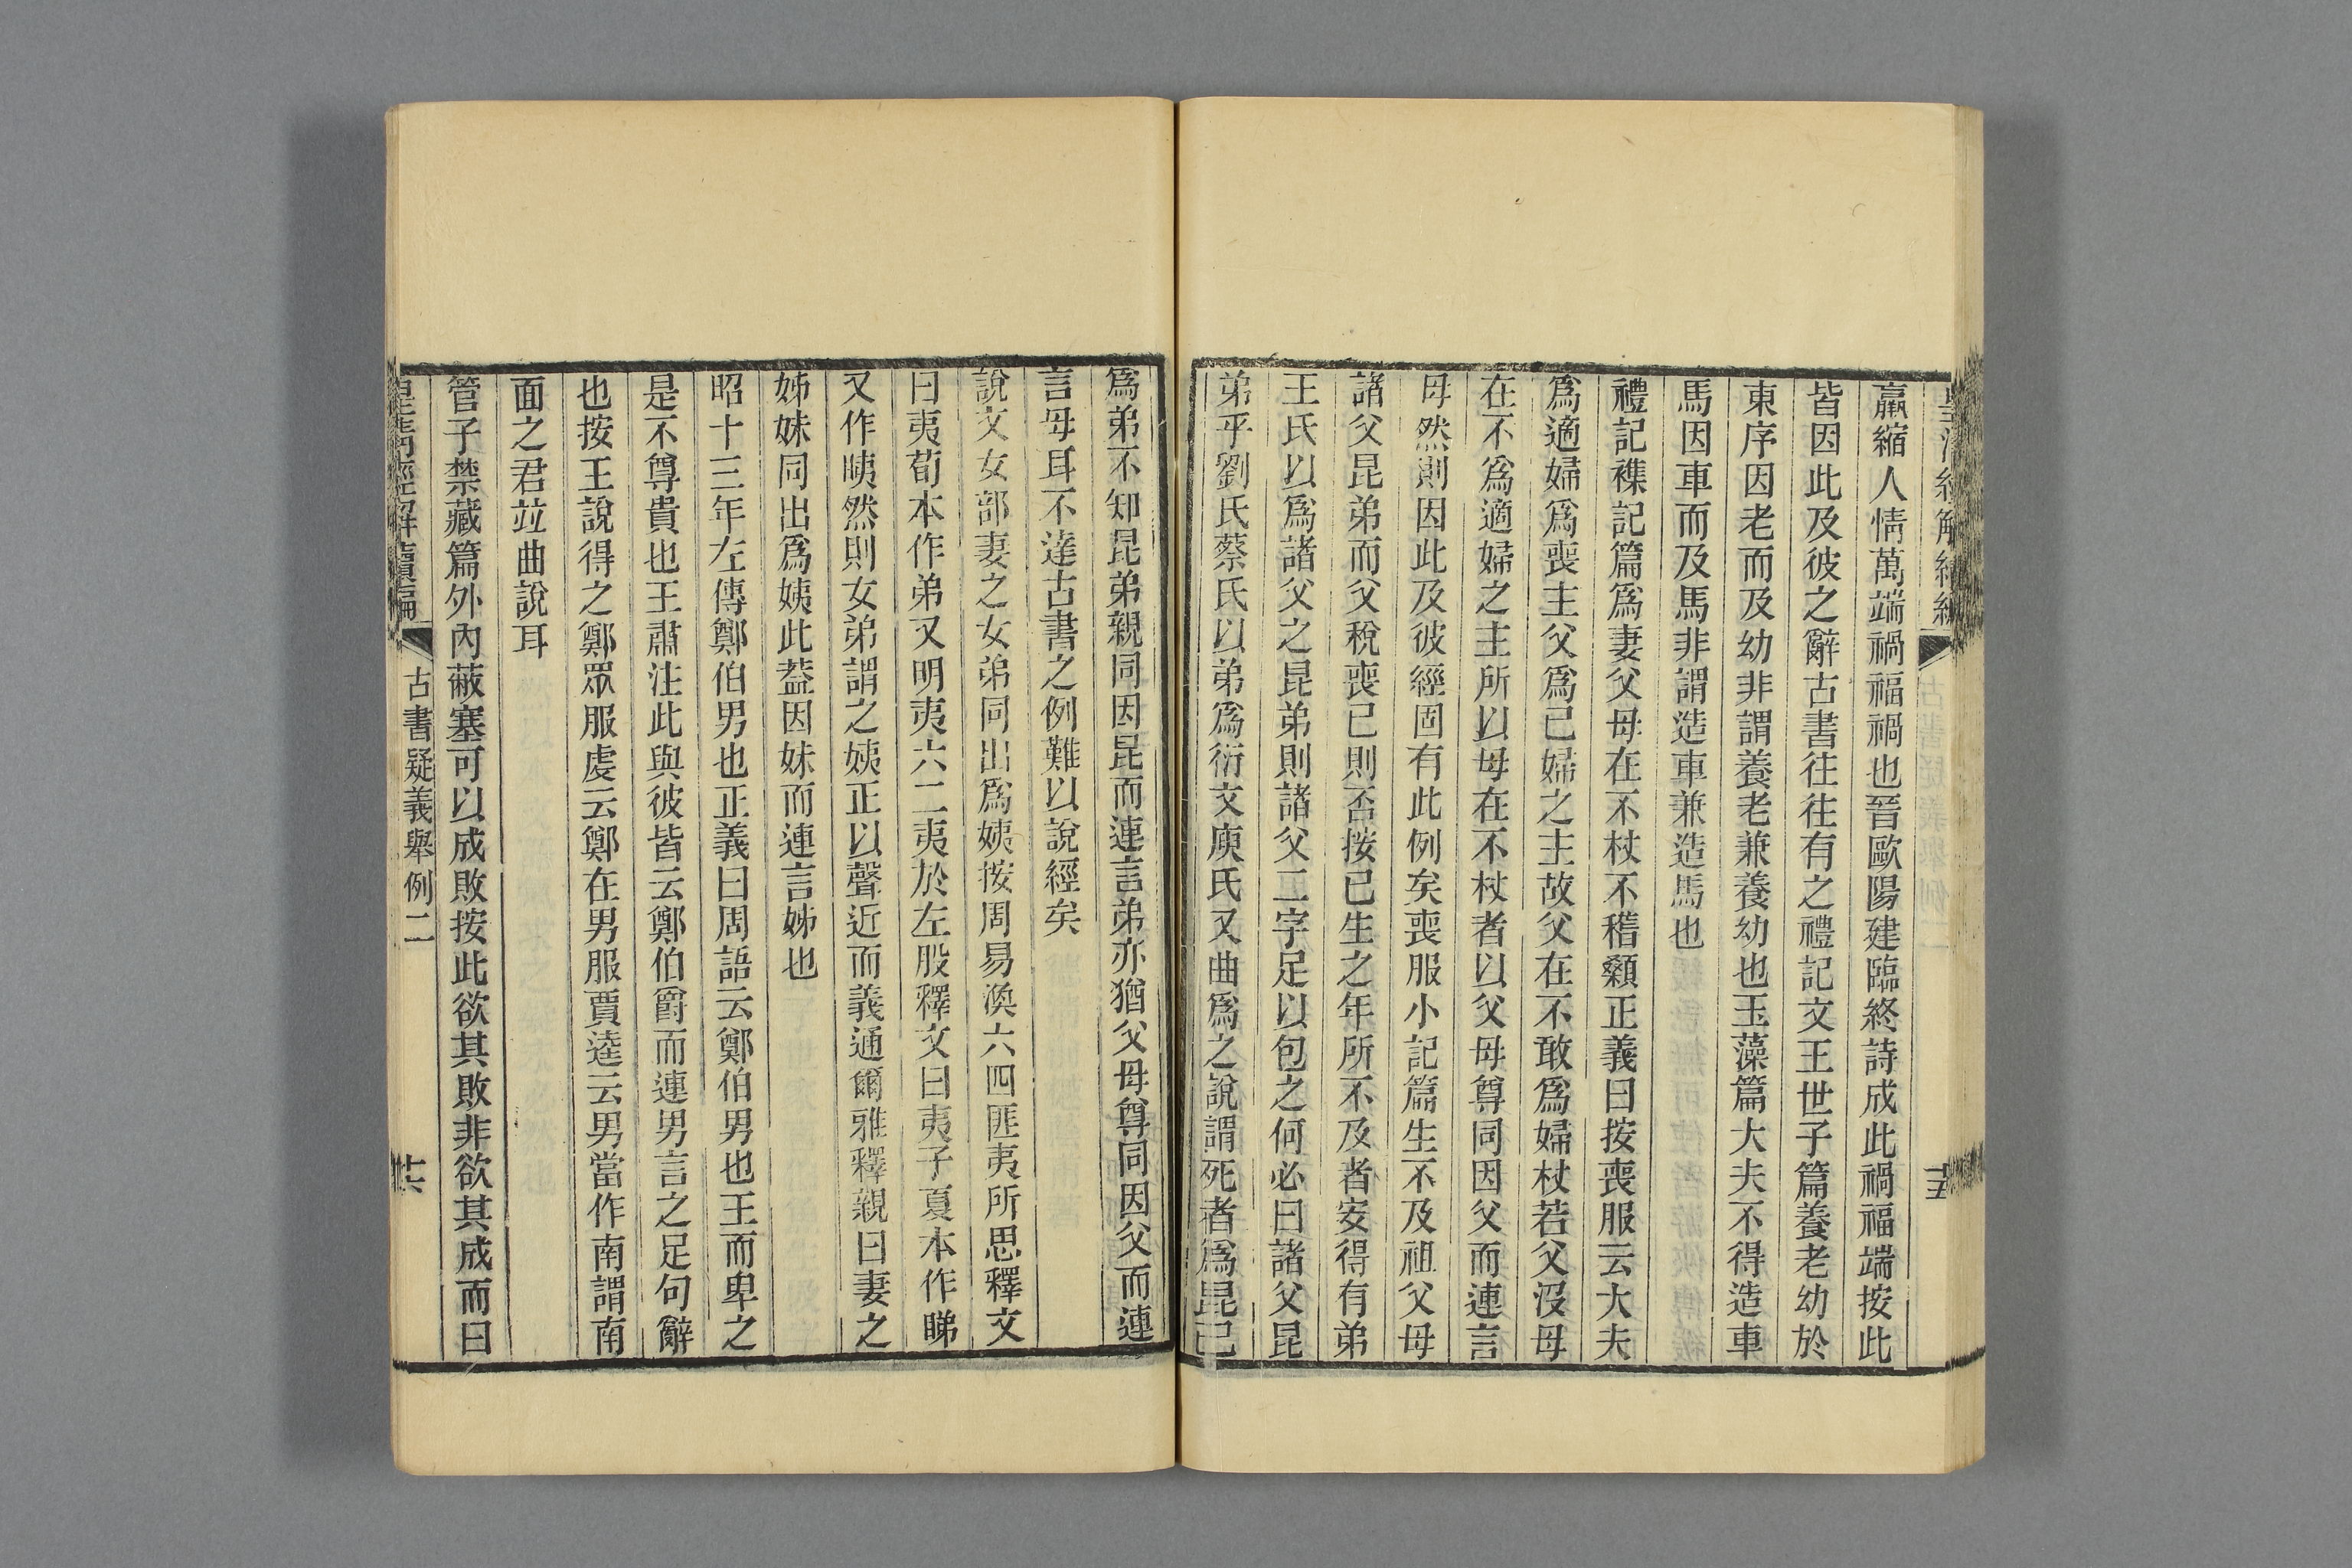 皇清經解續編
十五
羸縮人情萬端禍福禍也晉歐陽建臨終詩成此禍福端按此
皆因此及彼之辭古書往往有之禮記文王世子篇養老幼於
東序因老而及幼非謂養老兼養幼也玉藻篇大夫不得造車
馬因車而及馬非謂造車兼造馬也
禮記襍記篇爲妻父母在不杖不稽顙正義曰按喪服云大夫
爲適婦爲喪主父爲己婦之主故父在不敢爲婦杖若父沒母
在不爲適婦之主所以母在不杖者以父母尊同因父而連言
母然則因此及彼經固有此例矣喪服小記篇生不及祖父母
諸父昆弟而父稅喪已則否按已生之年所不及者安得有弟
王氏以爲諸父之昆弟則諸父二字足以包之何必曰諸父昆
弟乎劉氏蔡氏以弟爲衍文庾氏又曲爲之說謂死者爲昆已
爲弟不知昆弟親同因昆而連言弟亦猶父母尊同因父而連
言母耳不達古書之例難以說經矣
說文女部妻之女弟同出爲姨按周易渙六四匪夷所思釋文
曰夷荀本作弟又明夷六二夷於左股釋文曰夷子夏本作睇
又作眱然則女弟謂之姨正以聲近而義通爾雅釋親曰妻之
姊妹同出爲姨此葢因妹而連言姊也
昭十三年左傳鄭伯男也正義曰周語云鄭伯男也王而卑之
是不尊貴也王肅注此與彼皆云鄭伯爵而連男言之足句辭
也按王說得之鄭眾服虔云鄭在男服賈逵云男當作南謂南
面之君竝曲說耳
管子禁藏篇外內蔽塞可以成敗按此欲其敗非欲其成而曰
皇清經解續編
古書疑義舉例二
十六